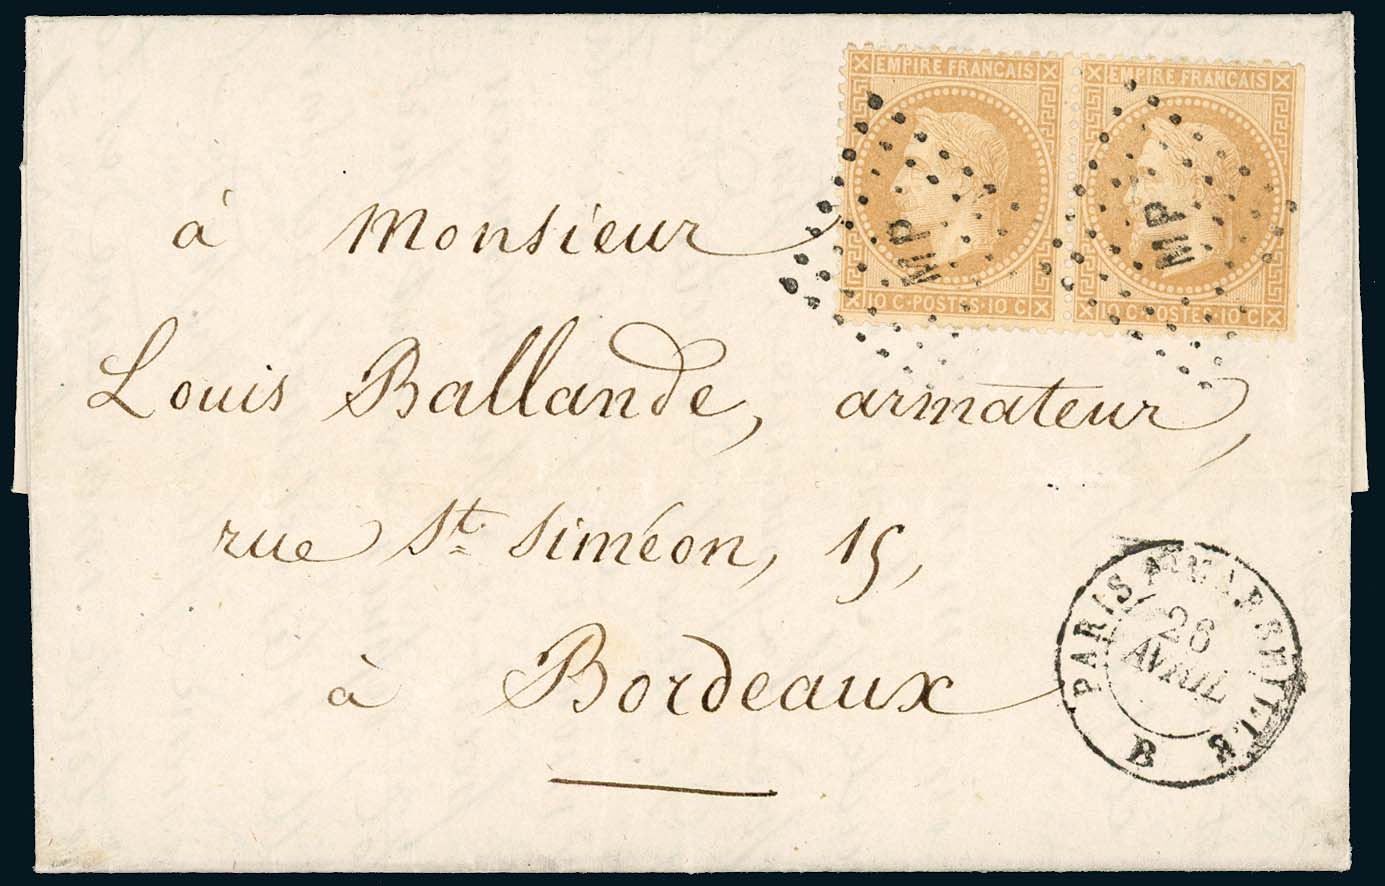 EMPIRE FRANCAIS EMPIRE FRANCAIS
MP MP
10 C · POSTES · 10 C 10 C · POSTES · 10 C
à Monsieur
Louis Ballande, armateur,
rue St. Siméon, 15,
à Bordeaux
PARIS A MARSEILLE
26
AVRIL
B